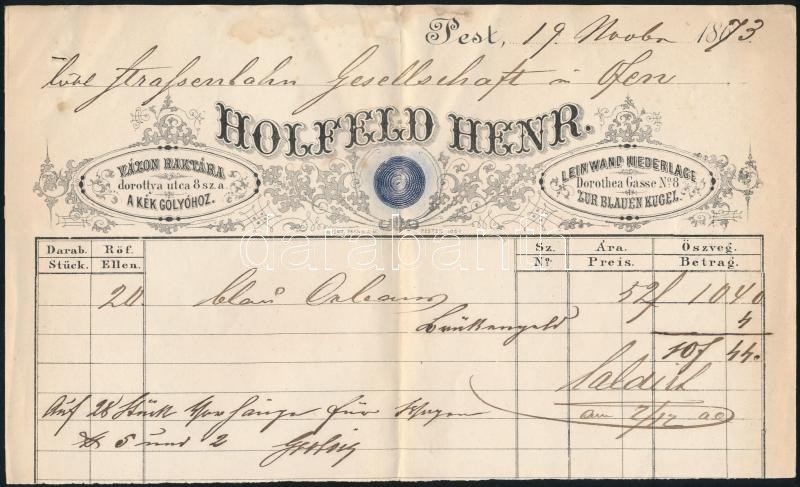 Pest, 19. Novbr 1873.
Strassenbahn Gesellschaft in Ofen
HOLFELD HENR.
VÁZON RAKTÁRA
dorottya utca 8 sz. a.
A KÉK GOLYÓHOZ.
LEINWAND NIEDERLAGE
Dorothea Gasse No 8
ZUR BLAUEN KUGEL.
Darab. Röf. Sz. Ára. Öszveg.
Stück. Ellen. No Preis. Betrag.
20 blau Orleans 52 f 10 40
Brükengeld 4
10 f 44.
Saldirt
am 2/12
Auf 28 Stück Vorhänge für Wagen
No 5 und 2
darabanth